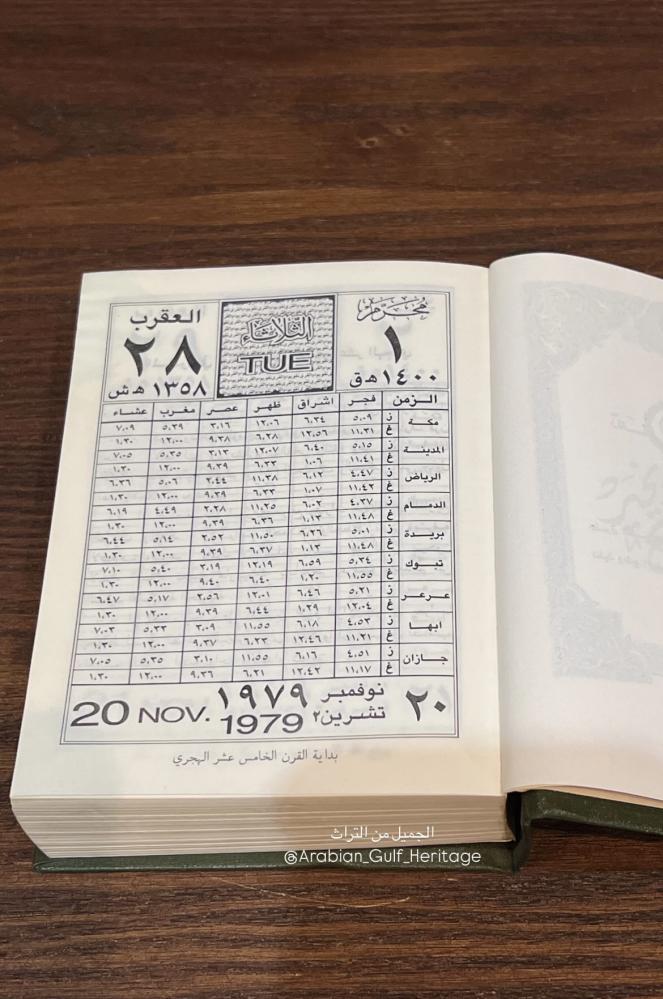 محرم الثلاثاء العقرب
١ TUE ٢٨
١٤٠٠ هـ ق ١٣٥٨ هـ ش
الزمن فجر اشراق ظهر عصر مغرب عشاء
مكة ز ٥،٠٩ ٦،٣٤ ١٢،٠٦ ٣،١٦ ٥،٣٩ ٧،٠٩
غ ١١،٣١ ١٢،٥٦ ٦،٢٨ ٩،٣٨ ١٢،٠٠ ١،٣٠
المدينة ز ٥،١٥ ٦،٤٠ ١٢،٠٧ ٣،١٣ ٥،٣٥ ٧،٠٥
غ ١١،٤١ ١،٠٦ ٦،٣٣ ٩،٣٩ ١٢،٠٠ ١،٣٠
الرياض ز ٤،٤٧ ٦،١٢ ١١،٣٨ ٢،٤٤ ٥،٠٦ ٦،٣٦
غ ١١،٤٢ ١،٠٧ ٦،٣٣ ٩،٣٩ ١٢،٠٠ ١،٣٠
الدمام ز ٤،٣٧ ٦،٠٢ ١١،٢٥ ٢،٢٨ ٤،٤٩ ٦،١٩
غ ١١،٤٨ ١،١٣ ٦،٣٦ ٩،٣٩ ١٢،٠٠ ١،٣٠
بريدة ز ٥،٠١ ٦،٢٦ ١١،٥٠ ٢،٥٢ ٥،١٤ ٦،٤٤
غ ١١،٤٨ ١،١٣ ٦،٣٧ ٩،٣٩ ١٢،٠٠ ١،٣٠
تبوك ز ٥،٣٤ ٦،٥٩ ١٢،١٩ ٣،١٩ ٥،٤٠ ٧،١٠
غ ١١،٥٥ ١،٢٠ ٦،٤٠ ٩،٤٠ ١٢،٠٠ ١،٣٠
عرعر ز ٥،٢١ ٦،٤٦ ١٢،٠١ ٢،٥٦ ٥،١٧ ٦،٤٧
غ ١٢،٠٤ ١،٢٩ ٦،٤٤ ٩،٣٩ ١٢،٠٠ ١،٣٠
ابها ز ٤،٥٣ ٦،١٨ ١١،٥٥ ٣،٠٩ ٥،٣٣ ٧،٠٣
غ ١١،٢١ ١٢،٤٦ ٦،٢� ٩،٣٧ ١٢،٠٠ ١،٣٠
جازان ز ٤،٥١ ٦،١٦ ١١،٥٥ ٣،١٠ ٥،٣٥ ٧،٠٥
غ ١١،١٧ ١٢،٤٢ ٦،٢١ ٩،٣٦ ١٢،٠٠ ١،٣٠
٢٠ نوفمبر ١٩٧٩
تشرين٢
20 NOV. 1979
بداية القرن الخامس عشر الهجري
الجميل من التراث
@Arabian_Gulf_Heritage